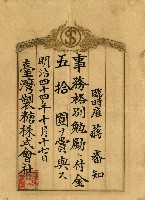 臨時雇 蔣番知
事務格別勉勵ニ付金
五拾圓ヲ賞與ス
明治四十四年十月二十七日
臺灣製糖株式會社